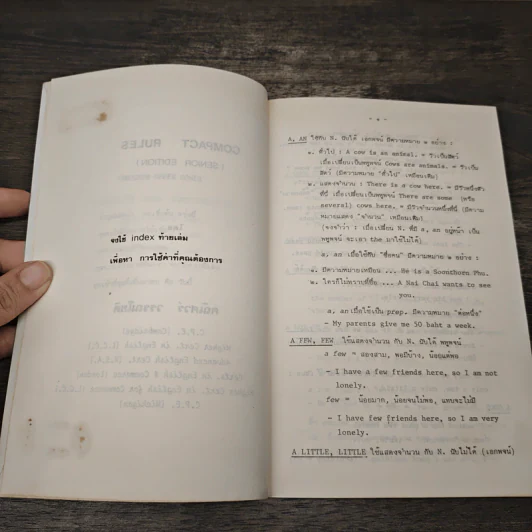 จงใช้ index ท้ายเล่ม
เพื่อหา การใช้คำที่คุณต้องการ
A, AN ใช้กับ N. นับได้ เอกพจน์ มีความหมาย ๒ อย่าง :
๑. ทั่วไป : A cow is an animal. = วัวเป็นสัตว์
เมื่อเปลี่ยนเป็นพหูพจน์ Cows are animals. = วัวเป็น
สัตว์ (มีความหมาย "ทั่วไป" เหมือนเดิม)
๒. แสดงจำนวน : There is a cow here. = มีวัวหนึ่งตัว
ที่นี่ เมื่อเปลี่ยนเป็นพหูพจน์ There are some (หรือ
several) cows here. = มีวัวจำนวนหนึ่งที่นี่ (มีความ
หมายแสดง "จำนวน" เหมือนเดิม)
(จงจำว่า : เมื่อเปลี่ยน N. ที่มี a, an อยู่หน้า เป็น
พหูพจน์ จะเอา the มาใช้ไม่ได้)
a, an เมื่อใช้กับ "ชื่อคน" มีความหมาย ๒ อย่าง :
๑. มีความหมายเหมือน ... He is a Soonthorn Phu.
๒. ใครก็ไม่ทราบที่ชื่อ ... A Nai Chai wants to see
you.
a, an เมื่อใช้เป็น prep. มีความหมาย "ต่อหนึ่ง"
- My parents give me 50 baht a week.
A FEW, FEW ใช้แสดงจำนวน กับ N. นับได้ พหูพจน์
a few = สองสาม, พอมีบ้าง, น้อยแต่พอ
- I have a few friends here, so I am not
lonely.
few = น้อยมาก, น้อยจนไม่พอ, แทบจะไม่มี
- I have few friends here, so I am very
lonely.
A LITTLE, LITTLE ใช้แสดงจำนวน กับ N. นับไม่ได้ (เอกพจน์)